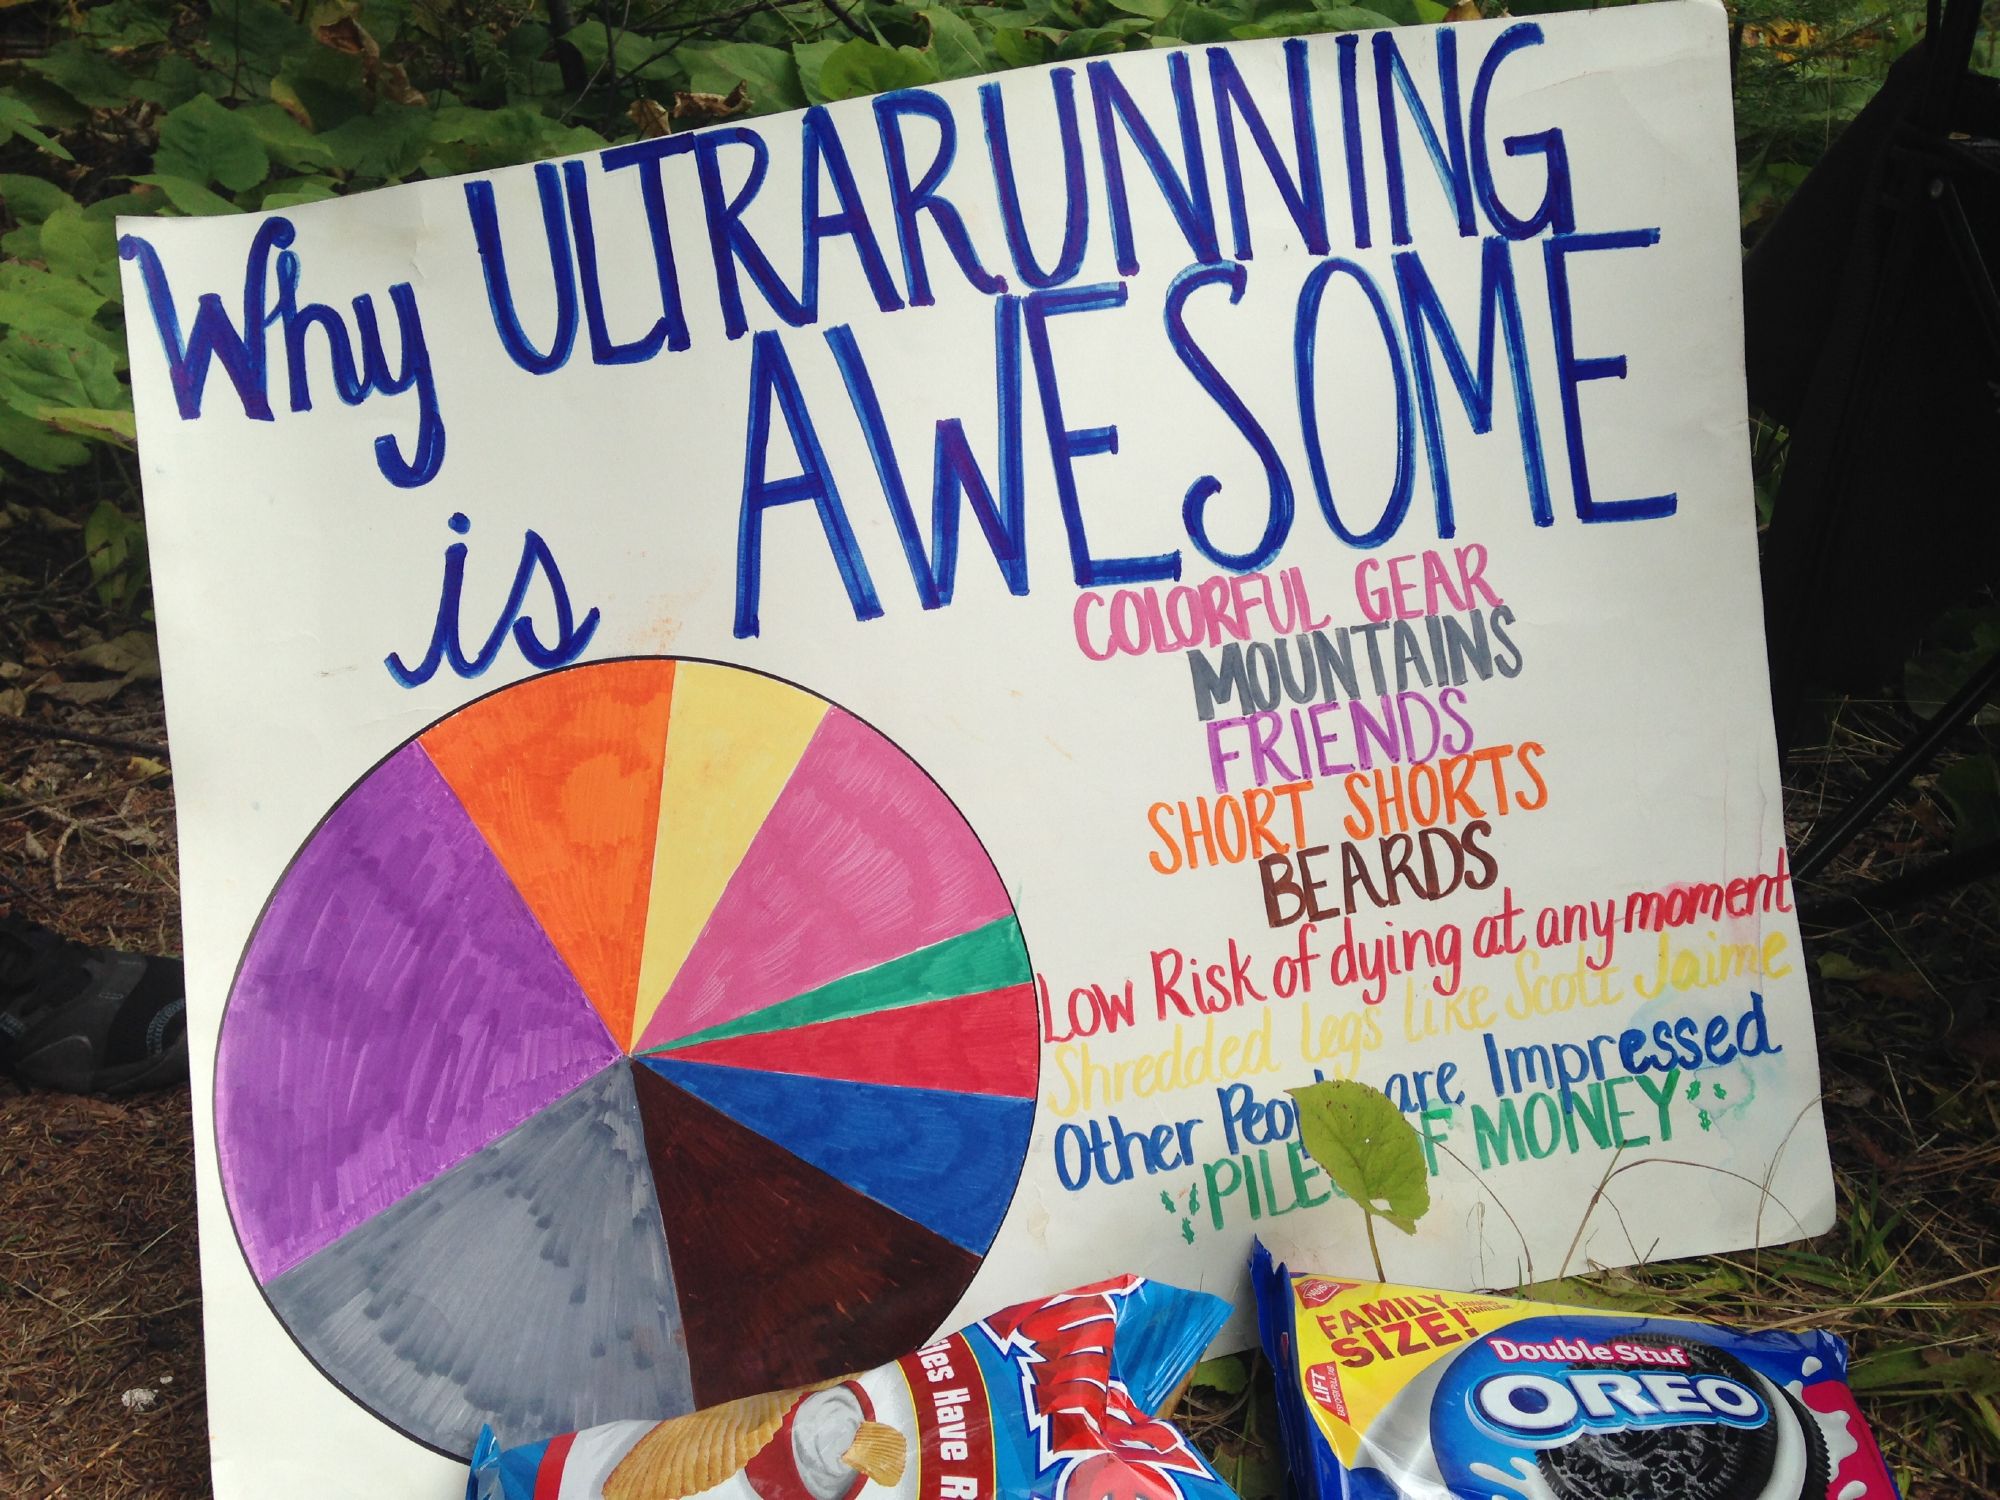 Why ULTRARUNNING
is AWESOME
COLORFUL GEAR
MOUNTAINS
FRIENDS
SHORT SHORTS
BEARDS
Low Risk of dying at any moment
Shredded legs like Scott Jaime
Other People are Impressed
$$$ PILES OF MONEY $$$
les Have R
NABISCO
FAMILY
SIZE!
TAMAÑO
FAMILIAR
LIFT
Double Stuf
OREO